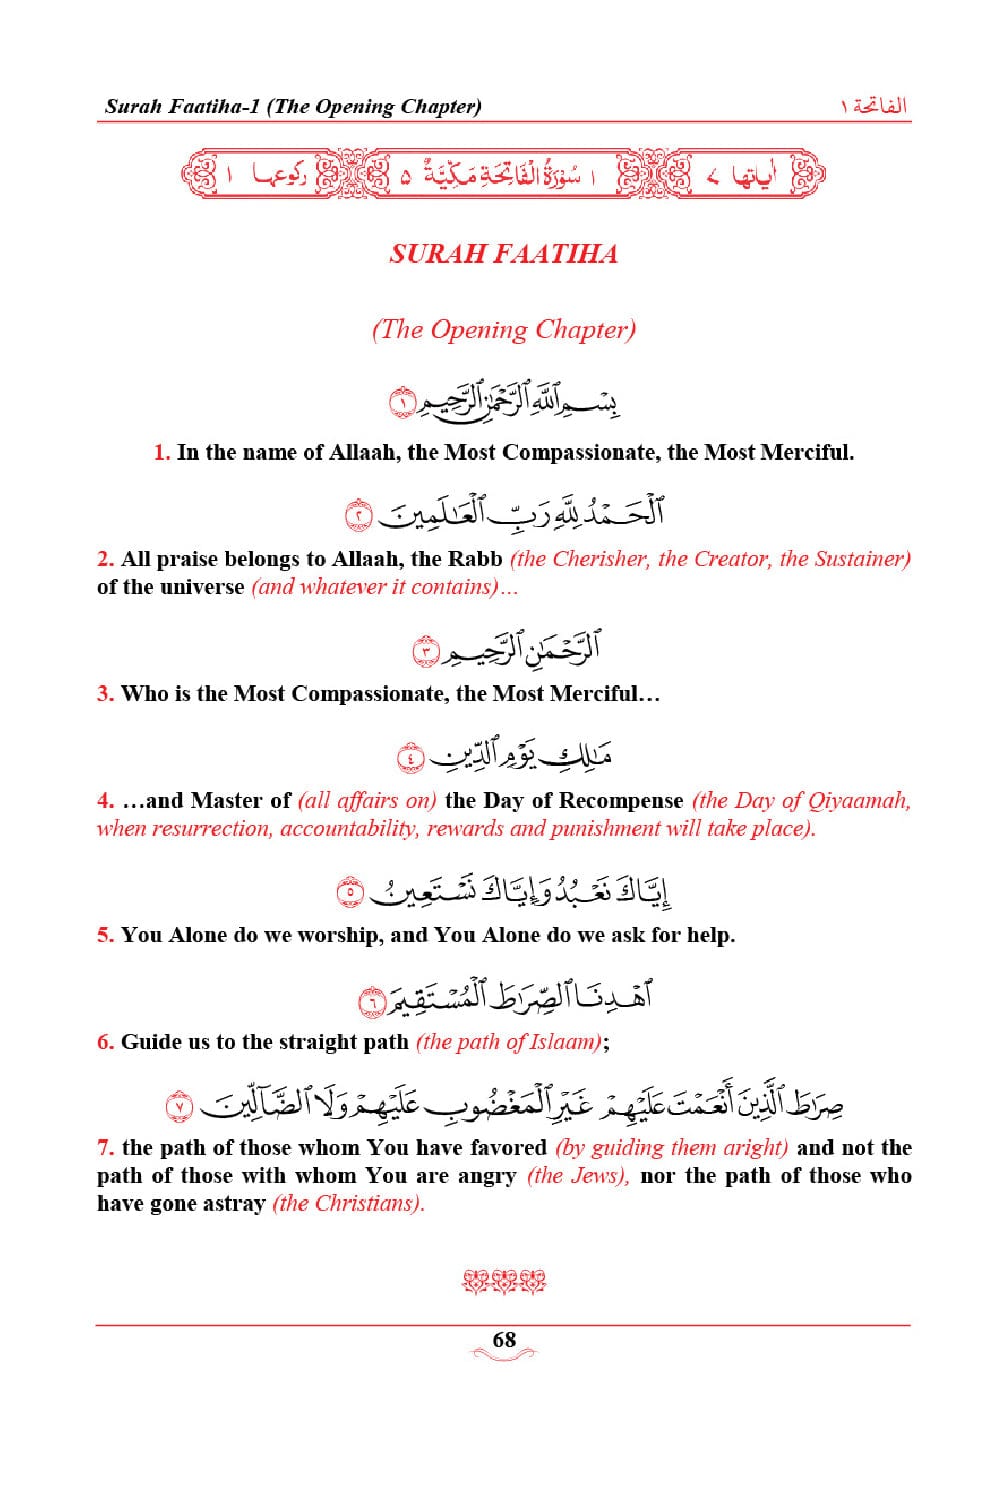 Surah Faatiha-1 (The Opening Chapter) الفاتحة ١
اٰياتها ٧ ١ سُوْرَةُ الْفَاتِحَةِ مَكِّيَّةٌ ٥ ركوعها ١
SURAH FAATIHA
(The Opening Chapter)
بِسْمِ ٱللَّهِ ٱلرَّحْمَٰنِ ٱلرَّحِيمِ ١
1. In the name of Allaah, the Most Compassionate, the Most Merciful.
ٱلْحَمْدُ لِلَّهِ رَبِّ ٱلْعَٰلَمِينَ ٢
2. All praise belongs to Allaah, the Rabb (the Cherisher, the Creator, the Sustainer)
of the universe (and whatever it contains)…
ٱلرَّحْمَٰنِ ٱلرَّحِيمِ ٣
3. Who is the Most Compassionate, the Most Merciful…
مَٰلِكِ يَوْمِ ٱلدِّينِ ٤
4. …and Master of (all affairs on) the Day of Recompense (the Day of Qiyaamah,
when resurrection, accountability, rewards and punishment will take place).
إِيَّاكَ نَعْبُدُ وَإِيَّاكَ نَسْتَعِينُ ٥
5. You Alone do we worship, and You Alone do we ask for help.
ٱهْدِنَا ٱلصِّرَٰطَ ٱلْمُسْتَقِيمَ ٦
6. Guide us to the straight path (the path of Islaam);
صِرَٰطَ ٱلَّذِينَ أَنْعَمْتَ عَلَيْهِمْ غَيْرِ ٱلْمَغْضُوبِ عَلَيْهِمْ وَلَا ٱلضَّآلِّينَ ٧
7. the path of those whom You have favored (by guiding them aright) and not the
path of those with whom You are angry (the Jews), nor the path of those who
have gone astray (the Christians).
68